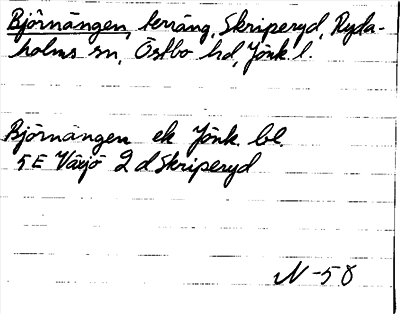 Björnängen, terräng, Skriperyd, Ryda-
holms sn, Östbo hd, Jönk. l.
Björnängen ek Jönk. bl.
5 E Växjö 2 d Skriperyd
N -58